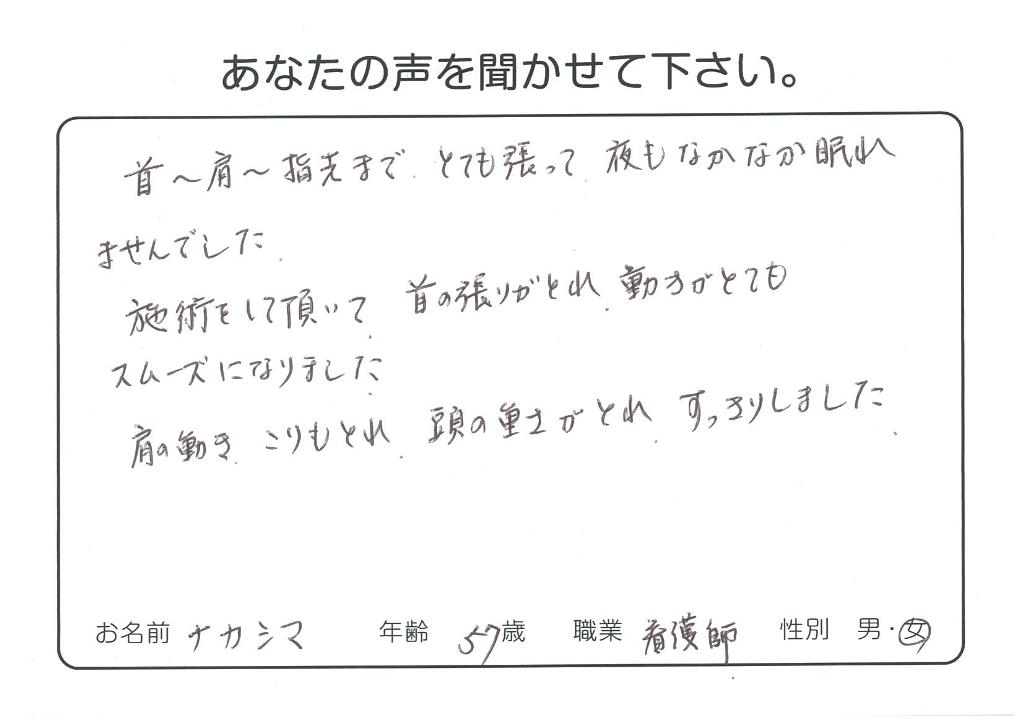 あなたの声を聞かせて下さい。
首～肩～指先まで、とても張って、夜もなかなか眠れ
ませんでした。
施術をして頂いて、首の張りがとれ、動きがとても
スムーズになりました
肩の動き、こりもとれ、頭の重さがとれ、すっきりしました、
お名前 ナカシマ 年齢 57歳 職業 看護師 性別 男・女